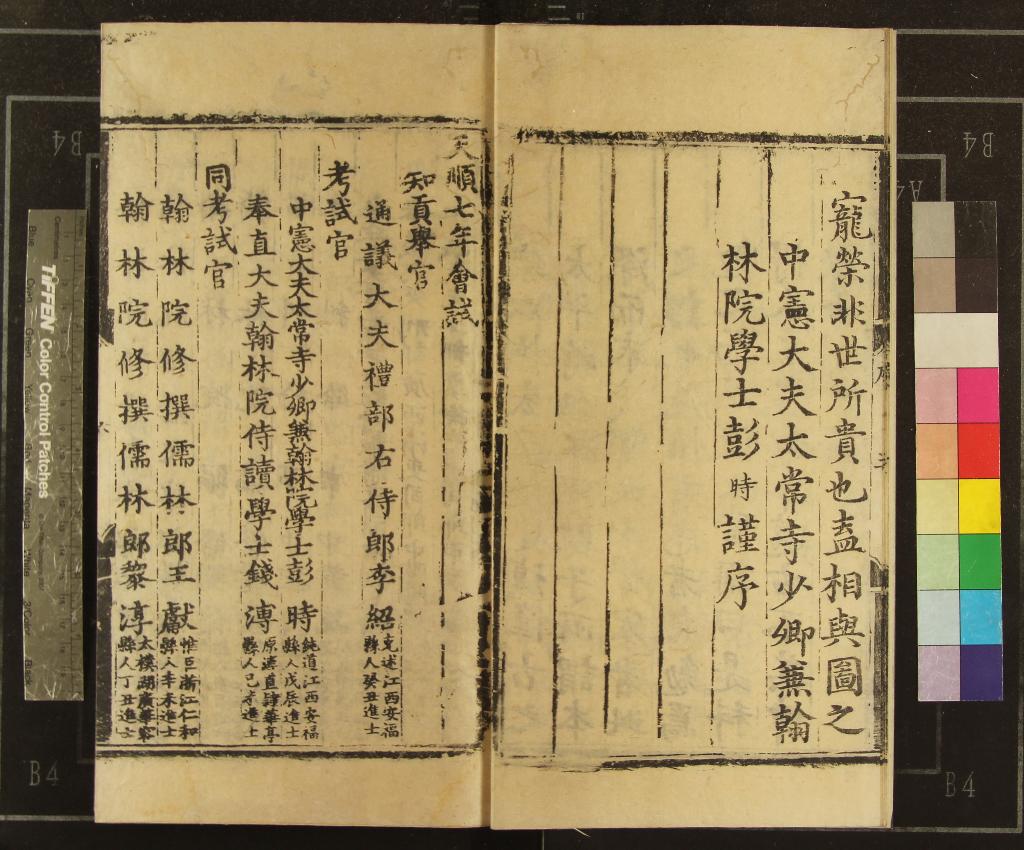 寵榮非世所貴也盍相與圖之
中憲大夫太常寺少卿兼翰
林院學士彭時謹序
序
天順七年會試
知貢舉官
通議大夫禮部右侍郎李紹克述江西安福
縣人癸丑進士
考試官
中憲大夫太常寺少卿兼翰林院學士彭時純道江西安福
縣人戊辰進士
奉直大夫翰林院侍讀學士錢溥原溥直隸華亭
縣人己未進士
同考試官
翰林院修撰儒林郎王獻惟臣浙江仁和
縣人辛未進士
翰林院修撰儒林郎黎淳太樸湖廣華容
縣人丁丑進士
TIFFEN Color Control Patches
B4
B4
B4
B4
A4